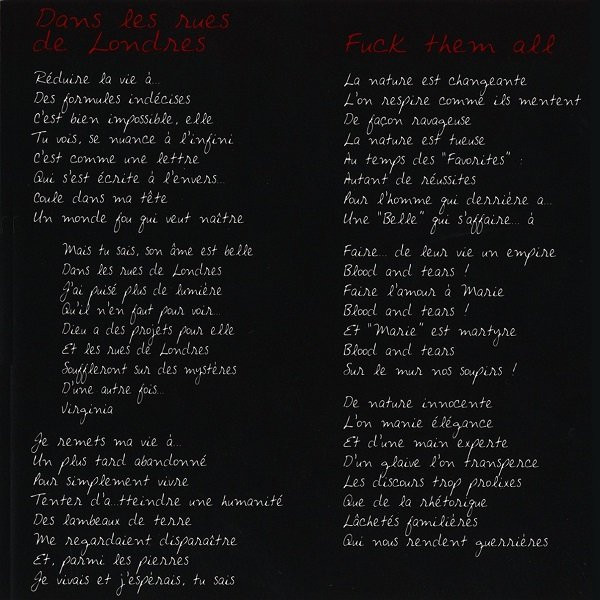 Dans les rues
de Londres
Réduire la vie à...
Des formules indécises
C'est bien impossible, elle
Tu vois, se nuance à l'infini
C'est comme une lettre
Qui s'est écrite à l'envers...
Coule dans ma tête
Un monde fou qui veut naître
Mais tu sais, son âme est belle
Dans les rues de Londres
J'ai puisé plus de lumière
Qu'il n'en faut pour voir...
Dieu a des projets pour elle
Et les rues de Londres
Souffleront sur des mystères
D'une autre fois...
Virginia
Je remets ma vie à...
Un plus tard abandonné
Pour simplement vivre
Tenter d'a...tteindre une humanité
Des lambeaux de terre
Me regardaient disparaître
Et, parmi les pierres
Je vivais et j'espérais, tu sais
Fuck them all
La nature est changeante
L'on respire comme ils mentent
De façon ravageuse
La nature est tueuse
Au temps des "Favorites" :
Autant de réussites
Pour l'homme qui derrière a...
Une "Belle" qui s'affaire... à
Faire... de leur vie un empire
Blood and tears !
Faire l'amour à Marie
Blood and tears !
Et "Marie" est martyre
Blood and tears
Sur le mur nos soupirs !
De nature innocente
L'on manie élégance
Et d'une main experte
D'un glaive l'on transperce
Les discours trop prolixes
Que de la rhétorique
Lâchetés familières
Qui nous rendent guerrières